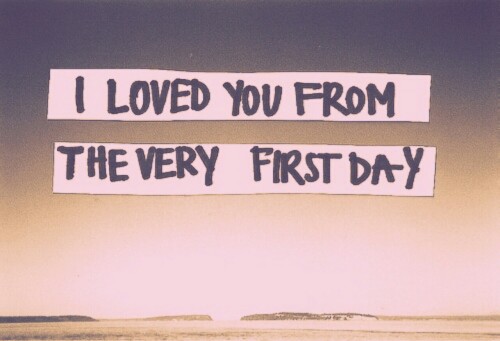 I LOVED YOU FROM
THE VERY FIRST DAY